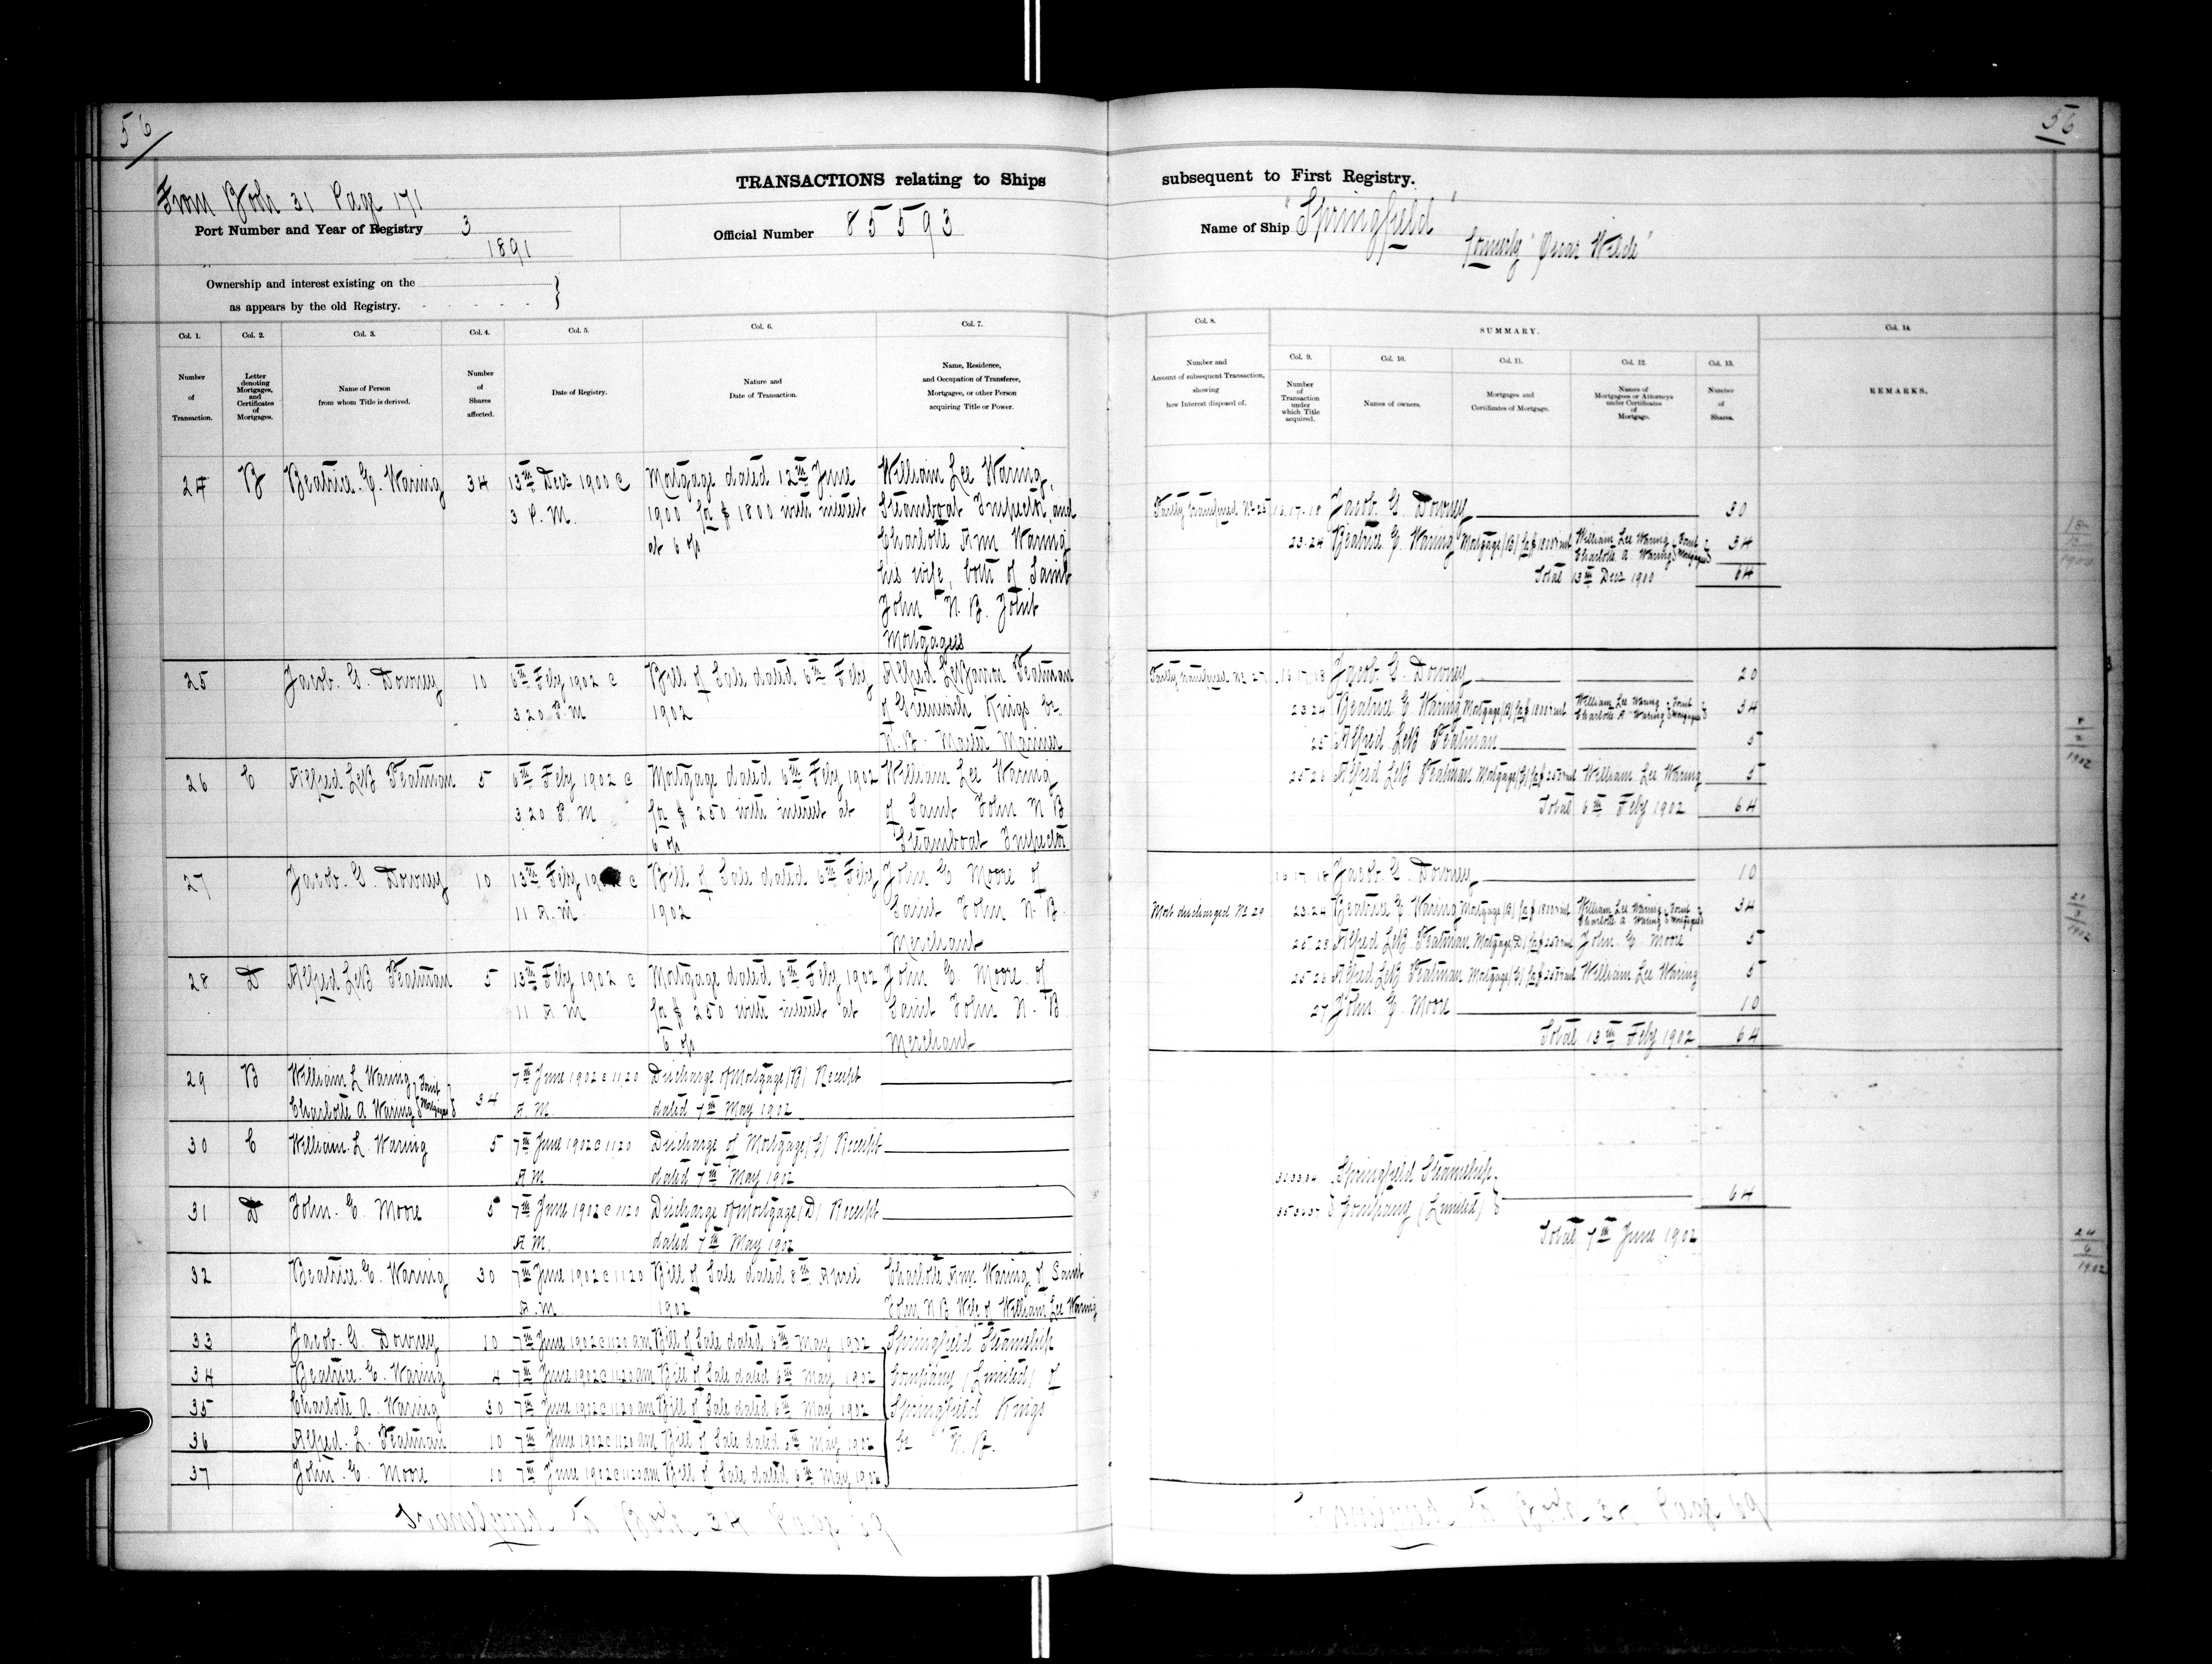 56
56
TRANSACTIONS relating to Ships
subsequent to First Registry.
From Book 31 Page 171
Port Number and Year of Registry 3
1891
Official Number 85593
Name of Ship "Springfield"
formerly "Oscar Wilde"
Ownership and interest existing on the
as appears by the old Registry.
Col. 1. Col. 2. Col. 3. Col. 4. Col. 5. Col. 6. Col. 7.
Number of Transaction.
Letter denoting Mortgages, and Certificates of Mortgages.
Name of Person from whom Title is derived.
Number of Shares affected.
Date of Registry.
Nature and Date of Transaction.
Name, Residence, and Occupation of Transferee, Mortgagee, or other Person acquiring Title or Power.
24 B Beatrice. E. Waring 34 13th Decr 1900 @ Mortgage dated 12th June William Lee Waring,
3 P. M. 1900 for $ 1800 with interest Steamboat Inspector, and
at 6 o/o Charlotte Ann Waring
his wife, both of Saint
John N. B. Joint
Mortgagees
25 Jacob. G. Downey 10 6th Feby 1902 @ Bill of Sale dated 6th Feby Alfred LeBaron Peatman
3 20 P. M 1902 of Greenwich Kings Co
N. B. Master Mariner
26 C Alfred LeB Peatman 5 6th Feby 1902 @ Mortgage dated 6th Feby 1902 William Lee Waring
3 20 P. M for $ 250 with interest at of Saint John N B
6 o/o Steamboat Inspector
27 Jacob. G. Downey 10 13th Feby @ Bill of Sale dated 6th Feby John E Moore of
11 A. M 1902 Saint John N. B.
Merchant
28 D Alfred LeB Peatman 5 13th Feby 1902 @ Mortgage dated 6th Feby 1902 John E. Moore of
11 A M for $ 250 with interest at Saint John N. B
6 o/o Merchant
29 B William L Waring Joint 34 7th June 1902 @ 11 20 Discharge of Mortgage (B) Receipt
Charlotte A Waring Mortgagees A. M. dated 7th May 1902
30 C William. L. Waring 5 7th June 1902 @ 11 20 Discharge of Mortgage (C) Receipt
A M dated 7th May 1902
31 D John. E. Moore 5 7th June 1902 @ 11 20 Discharge of Mortgage (D) Receipt
A M. dated 7th May 1902
32 Beatrice. E. Waring 30 7th June 1902 @ 11 20 Bill of Sale dated 8th April Charlotte Ann Waring of Saint
A. M 1902 John N B Wife of William Lee Waring
33 Jacob. G. Downey 10 7th June 1902 @ 11 20 am Bill of Sale dated 6th May 1902 Springfield Steamship
34 Beatrice. E. Waring 4 7th June 1902 @ 11 20 am Bill of Sale dated 6th May 1902 Company (Limited) of
35 Charlotte A. Waring 30 7th June 1902 @ 11 20 am Bill of Sale dated 6th May 1902 Springfield Kings
36 Alfred. L. Peatman 10 7th June 1902 @ 11 20 am Bill of Sale dated 6th May 1902 Co N. B.
37 John. E. Moore 10 7th June 1902 @ 11 20 am Bill of Sale dated 6th May 1902
Book 34 Page
Col. 8. SUMMARY. Col. 14.
Col. 9. Col. 10. Col. 11. Col. 12. Col. 13.
Number and Account of subsequent Transaction, showing how Interest disposed of.
Number of Transaction under which Title acquired.
Names of owners.
Mortgages and Certificates of Mortgage.
Names of Mortgagees or Attorneys under Certificates of Mortgage.
Number of Shares.
REMARKS.
Partly transferred No 25 16.17.18 Jacob. G. Downey 30
23.24 Beatrice E. Waring Mortgage (B) for $1800 & int William Lee Waring Charlotte A. Waring Joint Mortgagees 34
Total 13th Decr 1900 64
Partly transferred No 27 16 17 18 Jacob. G. Downey 20
23.24 Beatrice E Waring Mortgage (B) for $1800 & int William Lee Waring Charlotte A Waring Joint Mortgagees 34
25 Alfred LeB Peatman 5
25 26 Alfred LeB Peatman Mortgage (C) for $250 & int William Lee Waring 5
Total 6th Feby 1902 64
16 17 18 Jacob. G. Downey 10
Mort discharged No 29 23.24 Beatrice E Waring Mortgage (B) for $1800 & int William Lee Waring Charlotte A Waring Joint Mortgagees 34
25 28 Alfred LeB. Peatman Mortgage (D) for $250 & int John E Moore 5
25 26 Alfred LeB Peatman Mortgage (C) for $250 & int William Lee Waring 5
27 John. E. Moore 10
Total 13th Feby 1902 64
32 33 34 Springfield Steamship
35 36 37 Company (Limited) 64
Total 7th June 1902
Book 34 Page
24
6
1902